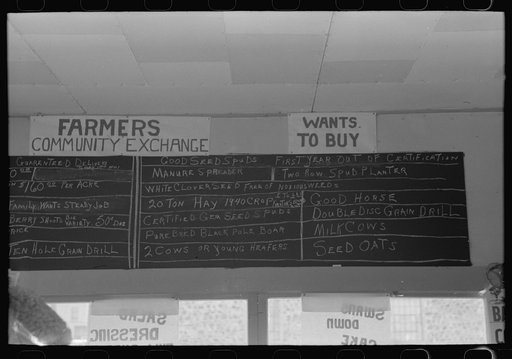 FARMERS
COMMUNITY EXCHANGE
WANTS
TO BUY
GUARENTEED DELIVERY
$160 00 PER ACRE
FAMILY WANTS STEADY JOB
BERRY SHOOTS BIG VARIETY 50¢ DOZ
TEN HOLE GRAIN DRILL
GOOD SEED SPUDS FIRST YEAR OUT OF CERTIFICATION
MANURE SPREADER
WHITE CLOVER SEED FREE OF NOXIOUS WEEDS
20 TON HAY 1940 CROP
CERTIFIED GEM SEED SPUDS
PURE BRED BLACK POLE BOAR
2 COWS OR YOUNG HEAFERS
TWO ROW SPUD PLANTER
GOOD HORSE
DOUBLE DISC GRAIN DRILL
MILK COWS
SEED OATS
DRESSING
SWANS
DOWN
CAKE